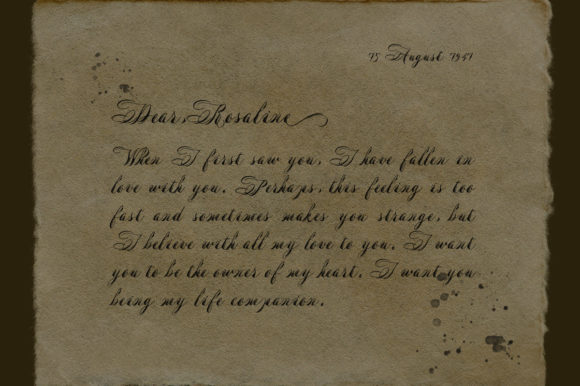 15 August 1951
Dear, Rosaline
When I first saw you, I have fallen in
love with you. Perhaps, this feeling is too
fast and sometimes makes you strange, but
I believe with all my love to you. I want
you to be the owner of my heart. I want you
being my life companion.